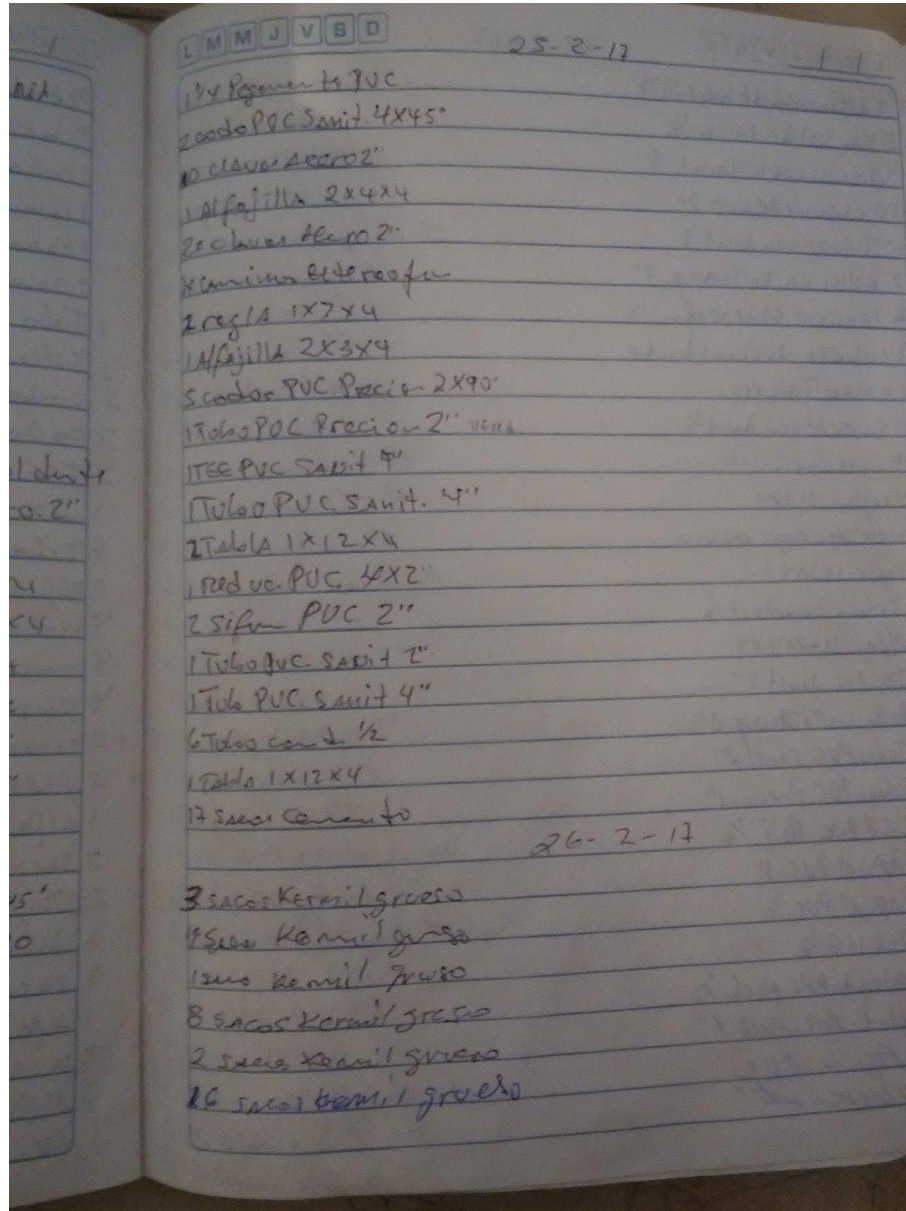 L M M J V S D
25-2-17
1/4 Pegamento PVC
2 codo PVC Sanit. 4x45°
clavos Acero 2"
1 Alfajilla 2x4x4
20 clavos Acero 2"
2 regla 1x7x4
1 Alfajilla 2x3x4
5 codos PVC Precion 2x90°
1 Tubo PVC Precion 2"
1 TEE PVC Sanit 4"
1 Tubo PVC Sanit. 4"
2 Tabla 1x12x4
1 Reduc. PVC 4x2"
2 Sifon PVC 2"
1 Tubo PVC. Sanit 2"
1 Tubo PVC. Sanit 4"
6 Tubo 1/2
1 Tabla 1x12x4
17 Sacos Cemento
26-2-17
3 Sacos Kermil grueso
Kermil grueso
1 saco Kermil grueso
8 Sacos Kermil grueso
2 Sacos Kermil grueso
26 Sacos Kermil grueso
o. 2"